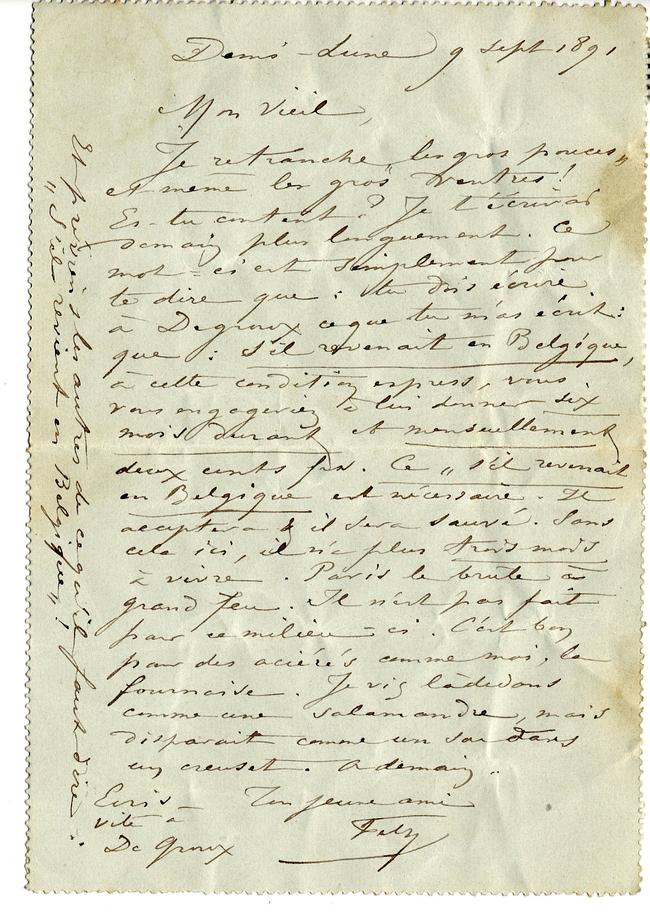 Demi-Lune 9 sept 1891
Mon vieil,
Je retranche „les gros pouces„
et même les gros ventres !
Es-tu content ? Je t'écrirai
demain plus longuement. Ce
mot = ci est simplement pour
te dire que : tu dois écrire
à Degroux ce que tu m'as écrit :
que : s'il revenait en Belgique,
à cette condition express, vous
vous engageriez à lui donner six
mois durant et mensuellement
deux cents frs. Ce „s'il revenait
en Belgique est nécessaire. Il
acceptera & il sera sauvé. Sans
cela ici, il n'a plus trois mois
à vivre. Paris le brûle à
grand feu. Il n'est pas fait
pour ce milieu-ci. C'est bon
pour des aciérés comme moi, la
fournaise. Je vis là dedans
comme une salamandre, mais
disparait comme un sou dans
un creuset. A demain„
Ton jeune ami
Fély
Ecris-
vite à
De Groux
Et préviens les autres de ce qu'il faut dire :
„S'il revient en Belgique„ !